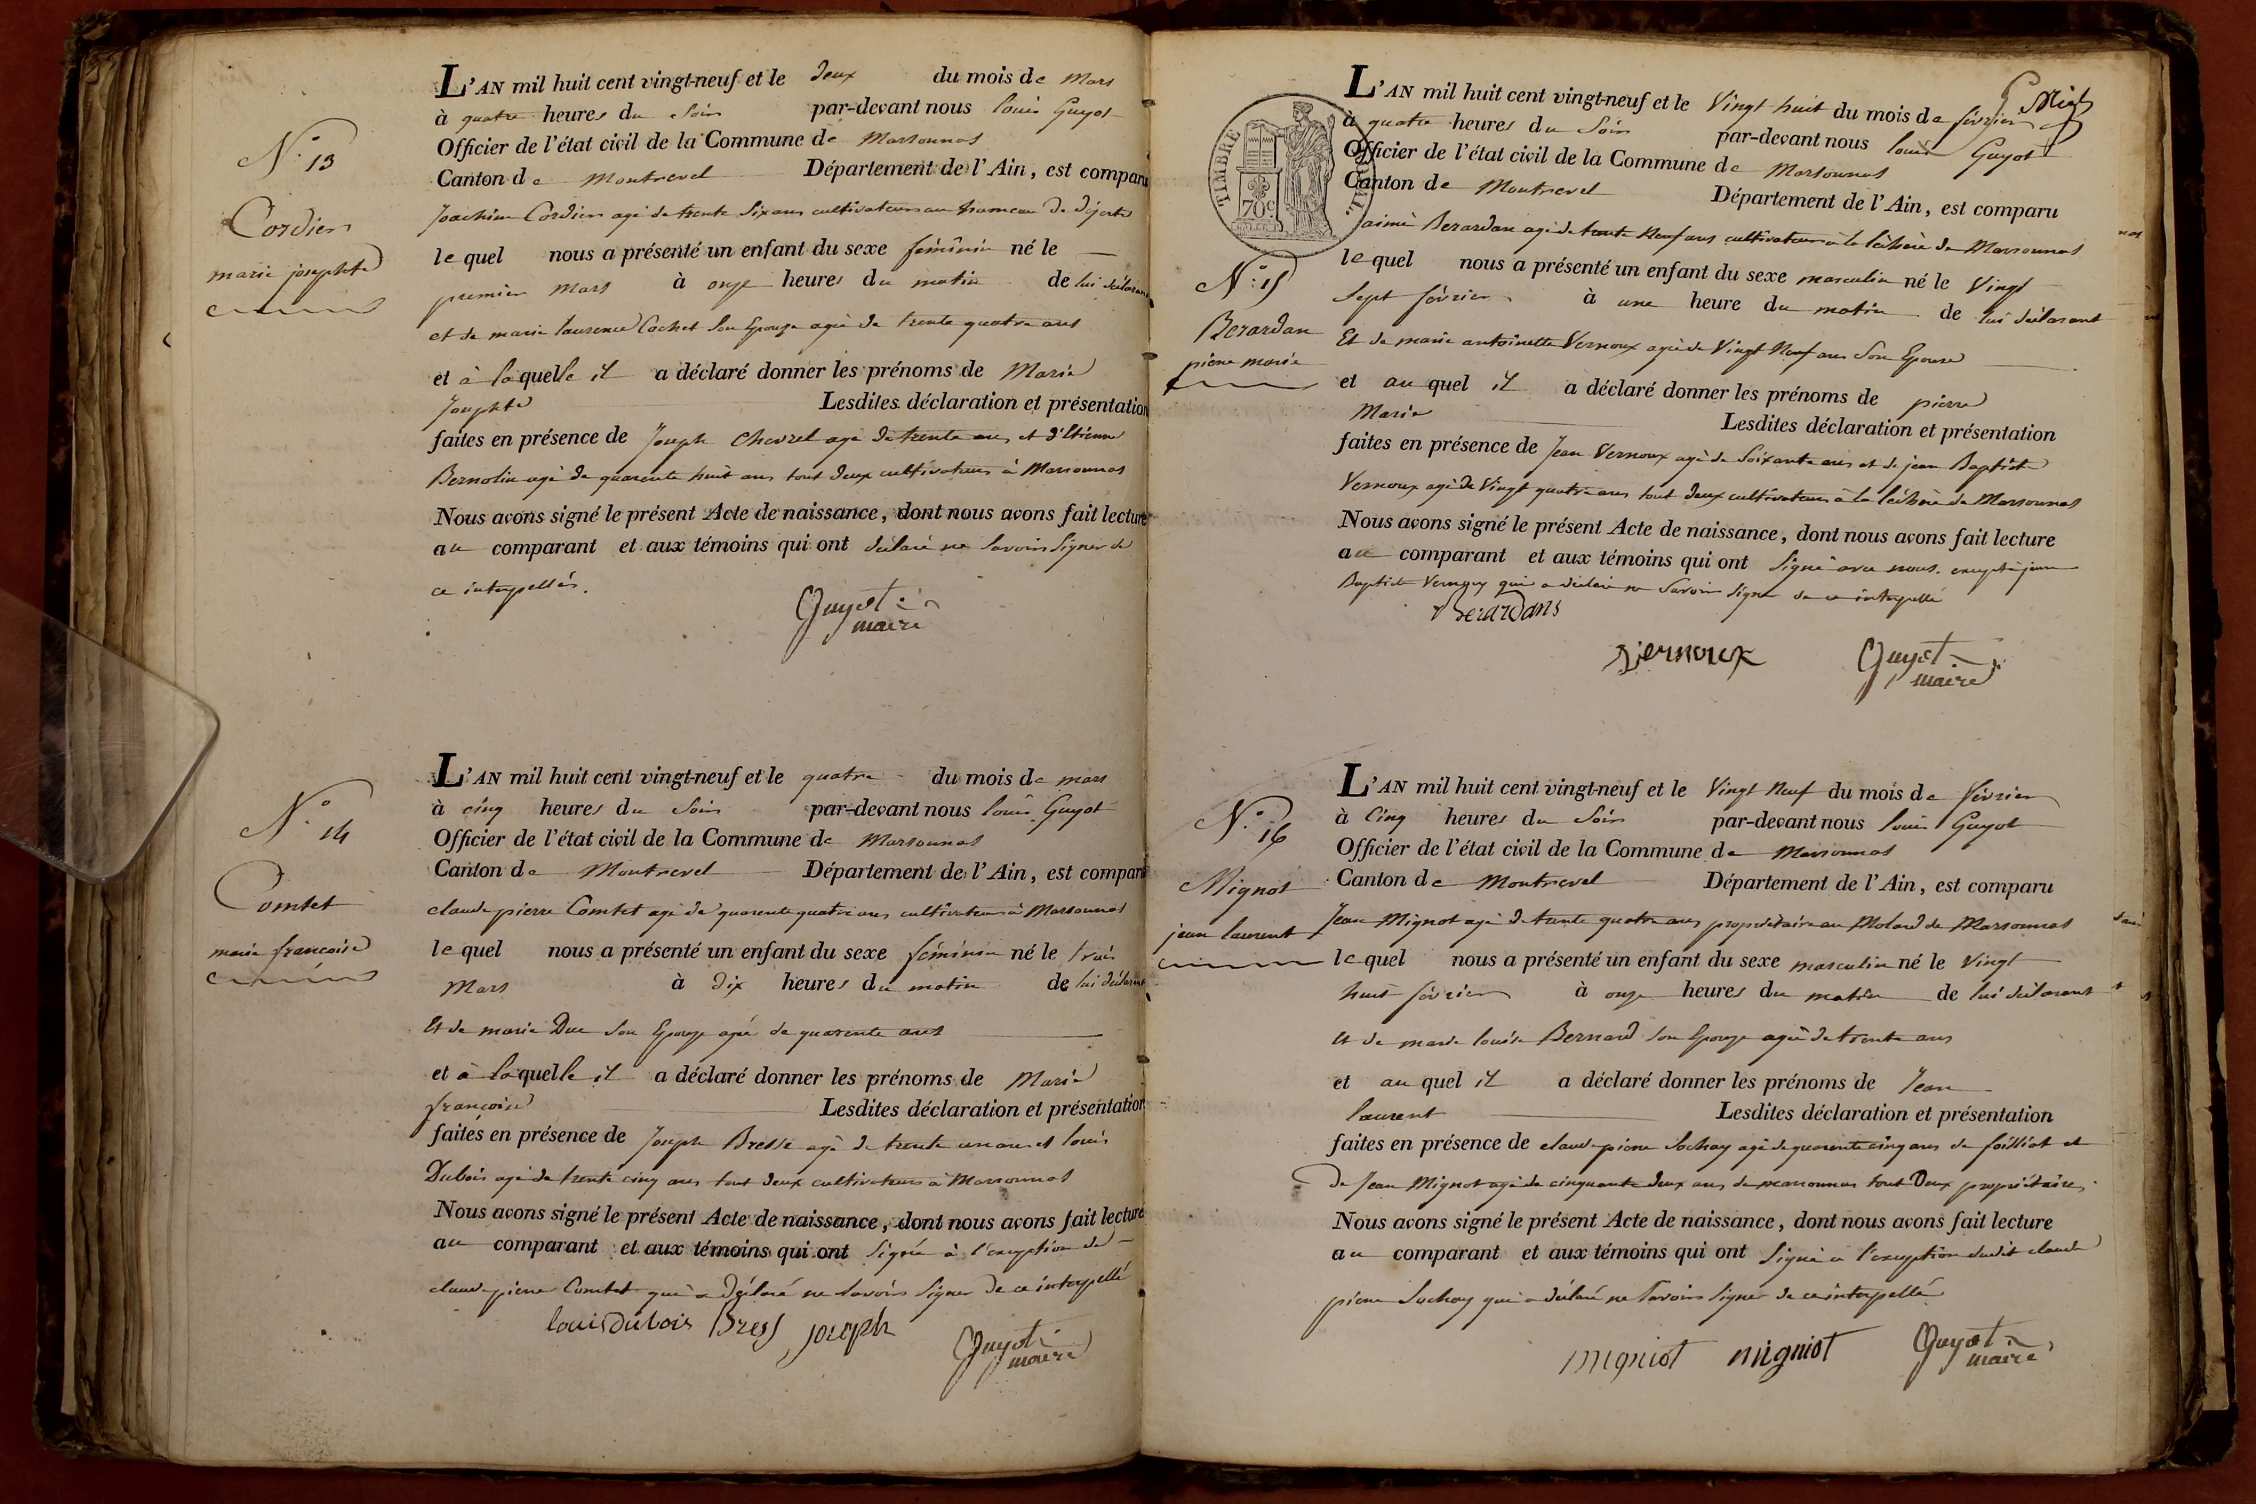 N.° 13
Cordier
marie josephte
L'AN mil huit cent vingt-neuf et le deux du mois de Mars
à quatre heures du Soir par-devant nous louis Guyot
Officier de l'état civil de la Commune de Marsonnas
Canton de Montrevel Département de l'Ain, est comparu
Joachim Cordier agé de trente Six ans cultivateur au hameau de
le quel nous a présenté un enfant du sexe féminin né le
premier Mars à onze heures du matin de lui déclarant
et de marie laurence Cochet Son Epouze agée de trente quatre ans
et à laquelle il a déclaré donner les prénoms de Marie
Josephte Lesdites déclaration et présentation
faites en présence de Joseph Chevrel agé de trente ans et d'Etienne
Bernolin agé de quarente huit ans tout deux cultivateurs à Marsonnas
Nous avons signé le présent Acte de naissance, dont nous avons fait lecture
au comparant et aux témoins qui ont déclaré ne Savoir Signer de
ce interpellés.
Guyot
maire
N.° 14
Comtet
marie francoise
L'AN mil huit cent vingt-neuf et le quatre du mois de mars
à cinq heures du Soir par-devant nous louis Guyot
Officier de l'état civil de la Commune de Marsonnas
Canton de Montrevel Département de l'Ain, est comparu
claude pierre Comtet agé de quarente quatre ans cultivateur à Marsonnas
le quel nous a présenté un enfant du sexe féminin né le trois
Mars à dix heures du matin de lui déclarant
Et de marie Duc Son Epouze agée de quarente ans
et à laquelle il a déclaré donner les prénoms de Marie
francoise Lesdites déclaration et présentation
faites en présence de Joseph Bresse agé de trente un ans et louis
Dubois agé de trente cinq ans tout deux cultivateurs à Marsonnas
Nous avons signé le présent Acte de naissance, dont nous avons fait lecture
au comparant et aux témoins qui ont Signé à l'exception de
claude pierre Comtet qui a déclaré ne Savoir Signer de ce interpellé
louis Dubois Bress joseph
Guyot
maire
TIMBRE
70c
N.° 15
Berardan
pierre marie
L'AN mil huit cent vingt-neuf et le Vingt huit du mois de février
à quatre heures du Soir par-devant nous louis Guyot
Officier de l'état civil de la Commune de Marsonnas
Canton de Montrevel Département de l'Ain, est comparu
aimé Berardan agé de trente Neuf ans cultivateur à la de Marsonnas
le quel nous a présenté un enfant du sexe masculin né le Vingt
Sept février à une heure du matin de lui déclarant
Et de marie antoinette Vernoux agée de Vingt Neuf ans Son Epouse
et au quel il a déclaré donner les prénoms de pierre
Marie Lesdites déclaration et présentation
faites en présence de Jean Vernoux agé de Soixante ans et de jean Baptiste
Vernoux agé de Vingt quatre ans tout deux cultivateurs à la de Marsonnas
Nous avons signé le présent Acte de naissance, dont nous avons fait lecture
au comparant et aux témoins qui ont Signé avec nous. excepté jean
Baptiste Vernoux qui a déclaré ne Savoir Signer de ce interpellé
Berardans
Vernoux
Guyot
maire
N.° 16
Mignot
jean laurent
L'AN mil huit cent vingt-neuf et le Vingt Neuf du mois de Février
à Cinq heures du Soir par-devant nous louis Guyot
Officier de l'état civil de la Commune de Marsonnas
Canton de Montrevel Département de l'Ain, est comparu
Jean Mignot agé de trente quatre ans propriétaire au Molard de Marsonnas
le quel nous a présenté un enfant du sexe masculin né le Vingt
huit février à onze heures du matin de lui déclarant
et de marie louise Bernard Son Epouze agée de trente ans
et au quel il a déclaré donner les prénoms de Jean
laurent Lesdites déclaration et présentation
faites en présence de claude pierre Sochay agé de quarente cinq ans de et
de Jean Mignot agé de cinquante deux ans de marsonnas tout Deux propriétaires.
Nous avons signé le présent Acte de naissance, dont nous avons fait lecture
au comparant et aux témoins qui ont Signé à l'exception dudit claude
pierre Sochay qui a déclaré ne Savoir Signer de ce interpellé
migniot migniot
Guyot
maire